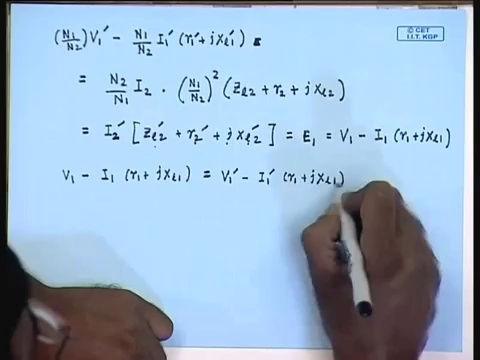 © CET
I.I.T. KGP
(N₁/N₂) V₁′ − N₁/N₂ I₁′ (r₁′ + jx_l1′)
= N₂/N₁ I₂ · (N₁/N₂)² (Z_l2 + r₂ + jx_l2)
= I₂′ [Z_l2′ + r₂′ + jx_l2′] = E₁ = V₁ − I₁ (r₁ + jx_l1)
V₁ − I₁ (r₁ + jx_l1) = V₁′ − I₁′ (r₁ + jx_l1)